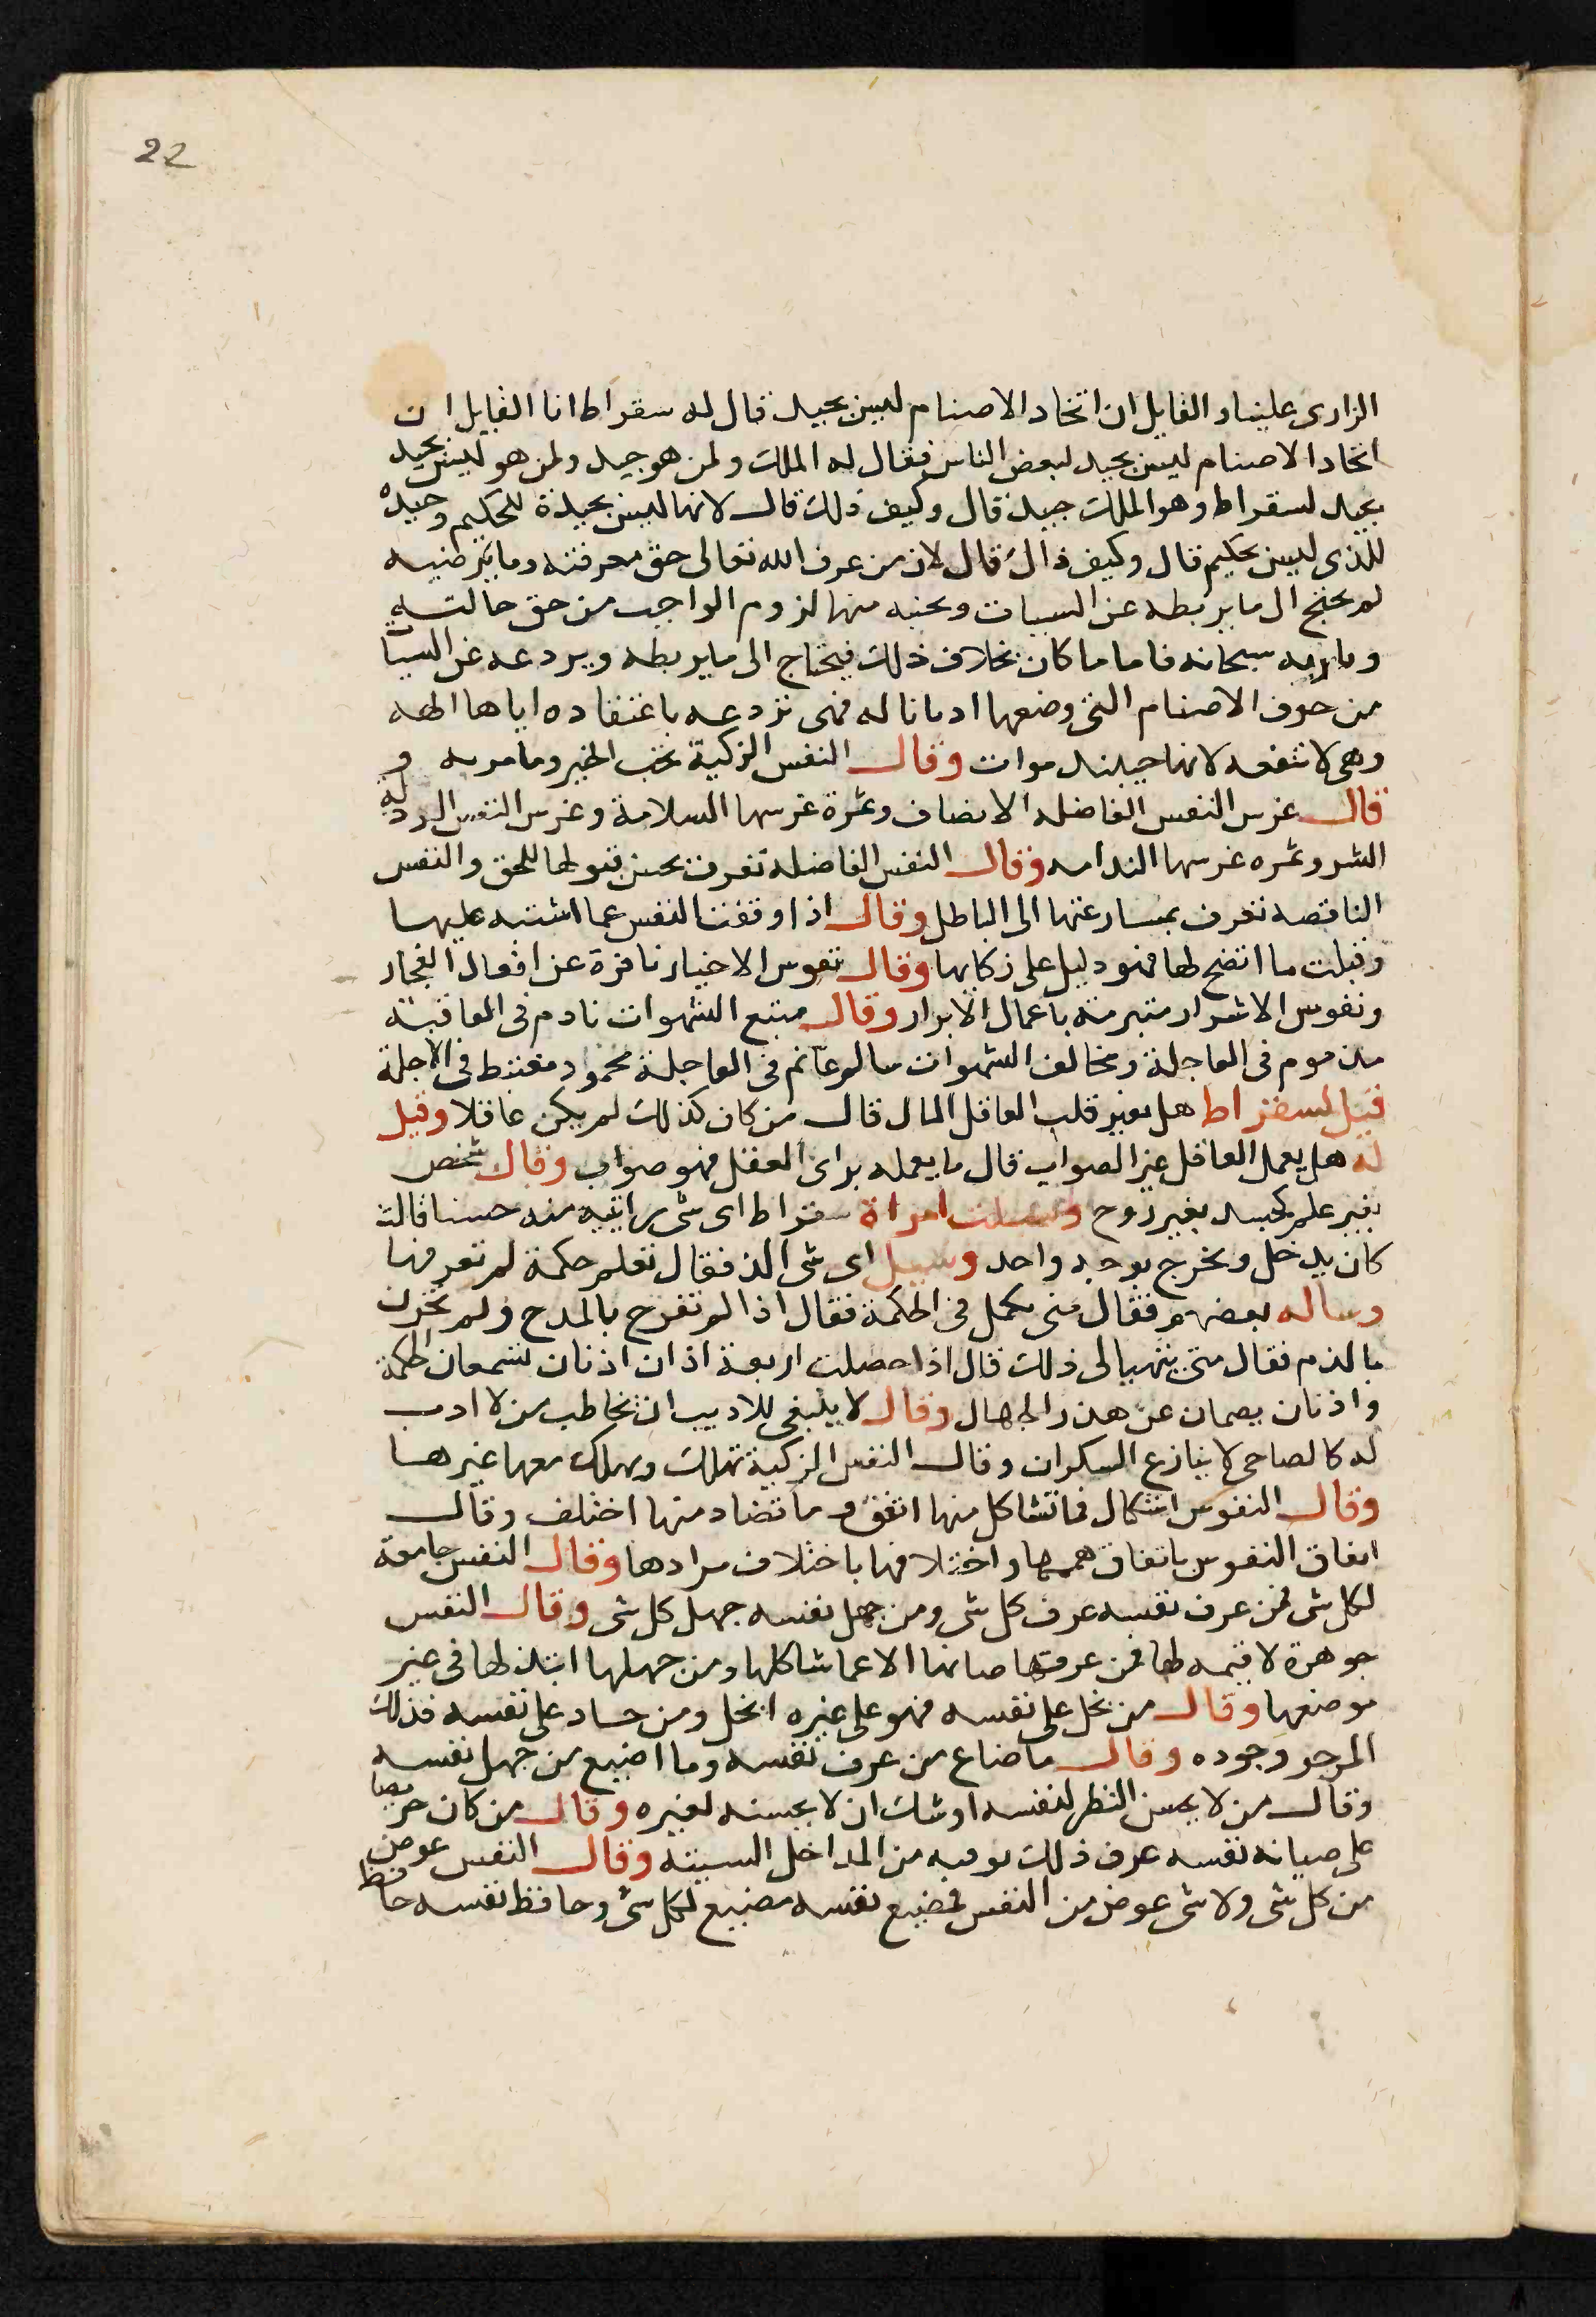 22
الزارى علينا والقايل ان اتخاد الاصنام ليس بجيد قال له سقراط انا القايل ان
اتخاد الاصنام ليس بجيد لبعض الناس فقال له الملك ولمن هو جيد ولمن هو ليس بجيد
بجيد لسقراط وهو الملك جيد قال وكيف ذلك قال لانها ليس بجيدة للحكيم وجيدة
للذى ليس بحكيم قال وكيف ذاك قال لان من عرف الله تعالى حق معرفته وما يرضيه
لم يحتج ال ما يربطه عن السيات ويحنبه منها لزوم الواجب من حق خالقه
وباريه سبحانه فاما ما كان بخلاف ذلك فيحتاج الى ما يربطه ويردعه عن السيات
من خوف الاصنام التى وضعها اديانا له فهى تردعه باعتقاده اياها الهه
وهى لا تنفعه لانها حينيد موات وقال النفس الزكية تحب الخير وتامر به و
قال غرس النفس الفاضله الانصاف وثمرة غرسها السلامة وغرس النفس الرذله
الشر وثمره غرسها الندامه وقال النفس الفاضله تعرف بحسن قبولها للحق والنفس
الناقصه تعرف بمسارعتها الى الباطل وقال اذا وقفت النفس عما اشتبه عليها
وقبلت ما اتضح لها فهو دليل على زكايها وقال نفوس الاخيار نافرة عن افعال الفجار
ونفوس الاشرار متبرمة باعمال الابرار وقال متبع الشهوات نادم فى العاقبة
مذموم فى العاجلة ومخالف الشهوات سالم غانم فى العاجلة محمود مغتبط فى الاجلة
قيل لسقراط هل يغير قلب العاقل المال قال من كان كذلك لم يكن عاقلا وقيل
له هل يعمل العاقل غير الصواب قال ما يعمله براى العقل فهو صواب وقال شخص
بغير علم كجسد بغير روح وسيلت امراة سقراط اى شى رايتيه منه حسنا قالت
كان يدخل ويخرج بوجه واحد وسيل اى شى الذ فقال تعلم حكمة لم تعرفها
وساله بعضهم فقال متى يكمل فى الحكمة فقال اذا لم تفرح بالمدح ولم تحزن
بالذم فقال متى يتهيا لى ذلك قال اذا حصلت اربعة اذان اذنان تسمعان الحكمة
واذنان يصمان عن هذر الجهال وقال لا ينبغى للاديب ان يخاطب من لا ادب
له كالصاحى لا ينازع السكران وقال النفس الزكية تملك ويملك معها غيرها
وقال النفوس اشكال فما تشاكل منها اتفق وما تضاد منها اختلف وقال
اتفاق النفوس باتفاق هممها واختلافها باختلاف مرادها وقال النفس جامعة
لكل شى فمن عرف نفسه عرف كل شى ومن جهل نفسه جهل كل شى وقال النفس
جوهرة لا قيمه لها فمن عرفها صانها الا عما شاكلها ومن جهلها ابتذلها فى غير
موضعها وقال من بخل على نفسه فهو على غيره ابخل ومن جاد على نفسه فذلك
المرجو وجوده وقال ما ضاع من عرف نفسه وما اضيع من جهل نفسه
وقال من لا يحسن النظر لنفسه اوشك ان لا يحسنه لغيره وقال من كان حريصا
على صيانه نفسه عرف ذلك بوقيه من المداخل السييه وقال النفس عوض
من كل شى ولا شى عوض من النفس فمضيع نفسه مضيع لكل شى وحافظ نفسه حافظ